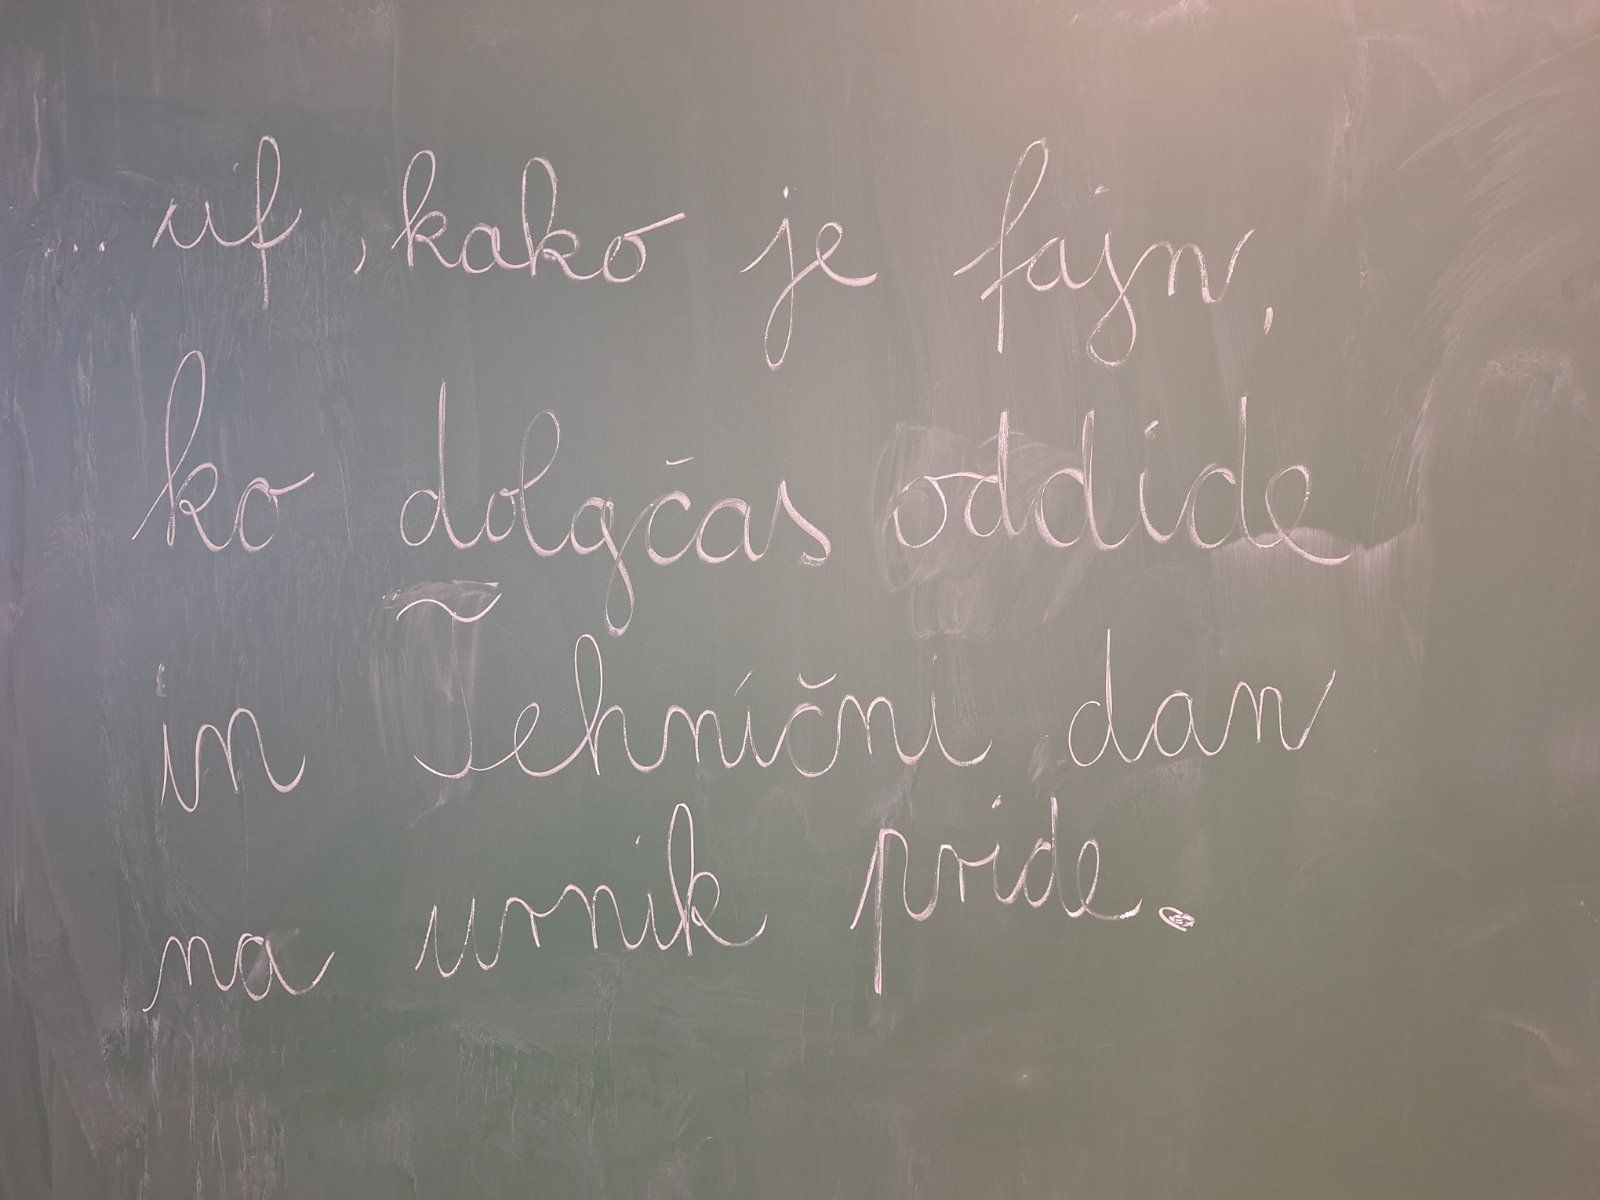 ... uf, kako je fajn,
ko dolgčas oddide
in Tehnični dan
na urnik pride.